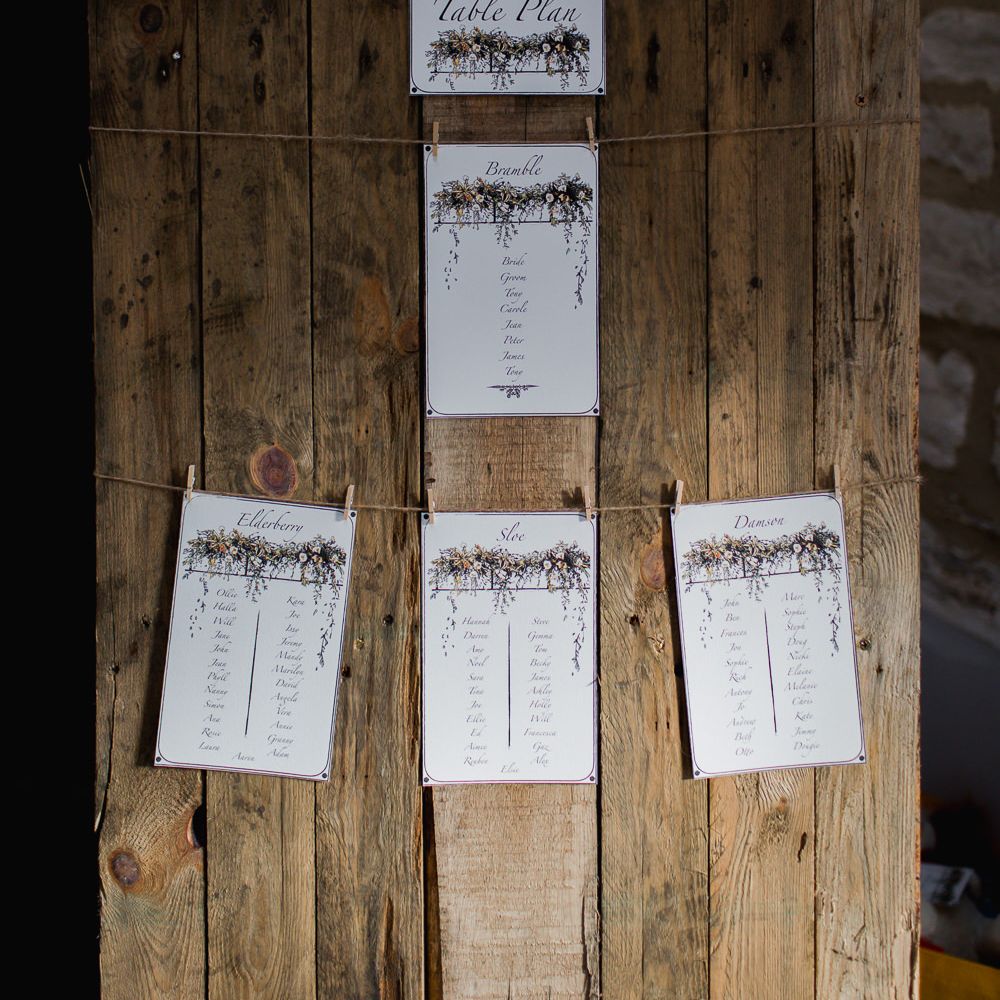 Table Plan
Bramble
Bride
Groom
Tony
Carole
Jean
Peter
James
Tony
Elderberry
Ollie
Halla
Will
Jane
John
Jean
Phyll
Nanny
Simon
Ana
Rosie
Laura
Kara
Joe
Issy
Jeremy
Mandy
Marilyn
David
Angela
Vera
Annie
Granny
Adam
Aaron
Sloe
Hannah
Darren
Amy
Noel
Sara
Tina
Joe
Ellie
Ed
Aimee
Reuben
Steve
Gemma
Tom
Becky
James
Ashley
Holly
Will
Francesca
Gaz
Alex
Elsie
Damson
John
Ben
Frances
Jon
Sophie
Rich
Antony
Jo
Andrew
Beth
Otto
Marc
Sophie
Steph
Doug
Nicki
Elaine
Melanie
Chris
Kate
Jimmy
Dougie